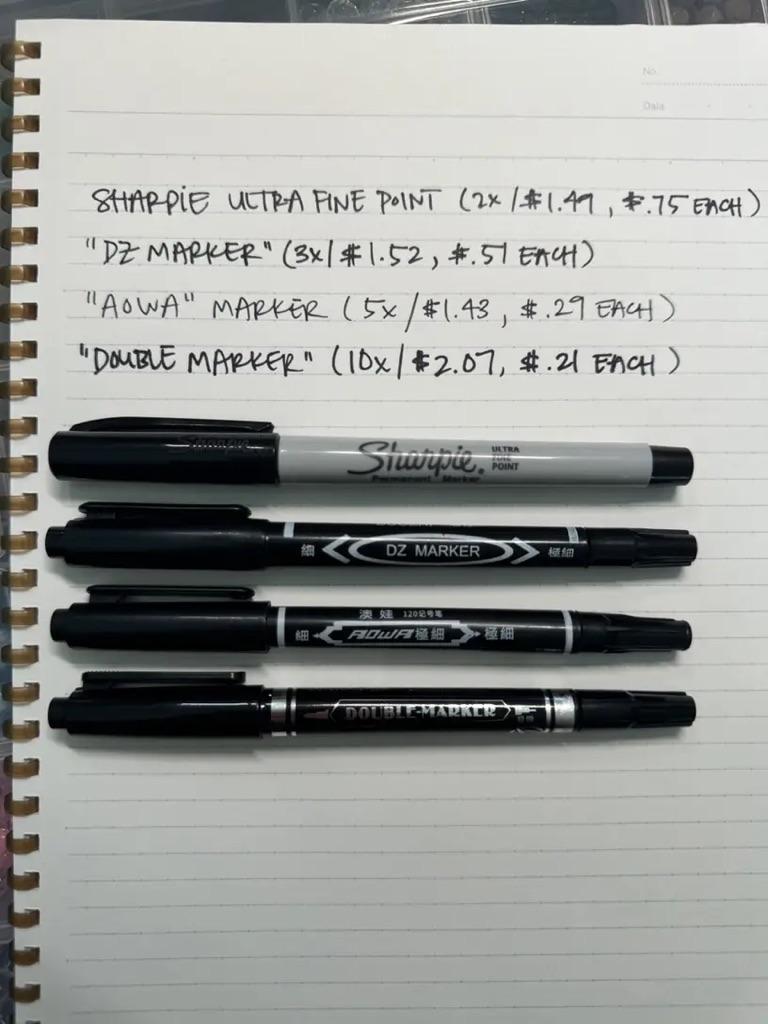 No.
Date
SHARPIE ULTRA FINE POINT (2x/$1.49, $.75 EACH)
"DZ MARKER" (3x/$1.52, $.51 EACH)
"AOWA" MARKER (5x/$1.43, $.29 EACH)
"DOUBLE MARKER" (10x/$2.07, $.21 EACH)
Sharpie
Sharpie. ULTRA FINE POINT
Permanent Marker
細 DZ MARKER 極細
澳娃 120记号笔
細 AOWA 極細 極細
DOUBLE-MARKER